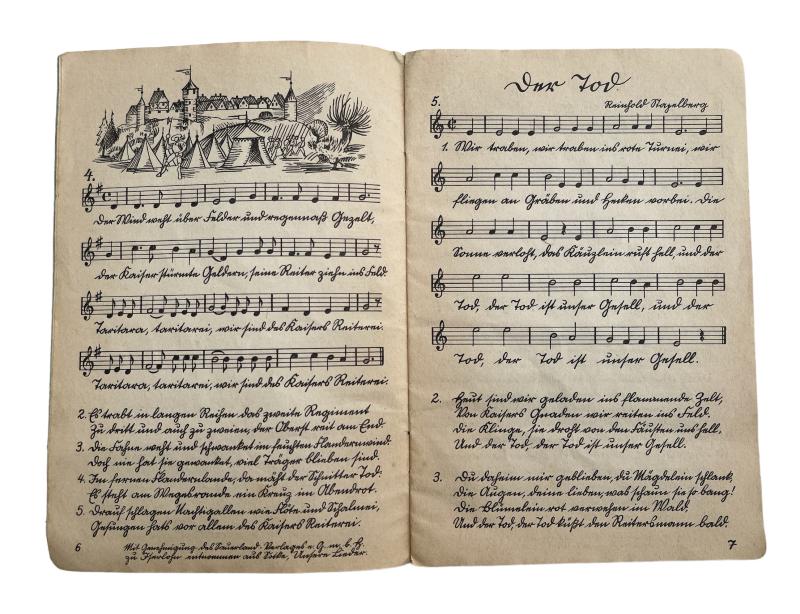 4.
Der Wind weht über Felder und regennaß Gezelt,
der Kaiser stürmte Geldern, seine Reiter ziehn ins Feld.
Taritara, taritarei, wir sind des Kaisers Reiterei.
Taritara, taritarei, wir sind des Kaisers Reiterei.
2. Es trabt in langen Reihen das zweite Regiment
Zu dritt und auch zu zweien, der Oberst reit am End.
3. Die Fahne weht und schwanket im feuchten Flandernwind.
Doch nie hat sie gewanket, viel Träger blieben sind.
4. Im fernen Flandernlande, da mäht der Schnitter Tod.
Es steht am Wegesrande ein Kreuz im Abendrot.
5. Drauf schlagen Nachtigallen wie Flöt und Schalmei,
Gesungen hats vor allem des Kaisers Reiterei.
6
Mit Genehmigung des Sauerland-Verlages e. G. m. b. H.
zu Iserlohn entnommen aus Götke, Unsere Lieder.
Der Tod.
5.
Reinhold Stapelberg
1. Wir traben, wir traben ins rote Turnei, wir
fliegen an Gräben und Hecken vorbei. Die
Sonne verloht, das Käuzlein ruft hell, und der
Tod, der Tod ist unser Gesell, und der
Tod, der Tod ist unser Gesell.
2. Heut sind wir geladen ins flammende Zelt,
Von Kaisers Gnaden wir reiten ins Feld.
Die Klinge, sie droht von den Fäusten uns hell,
Und der Tod, der Tod ist unser Gesell.
3. Du daheim mir geblieben, du Mägdelein schlank,
Die Augen, deine lieben, was schaun sie so bang!
Die Blümelein rot verwehen im Wald.
Und der Tod, der Tod küßt den Reitersmann bald.
7